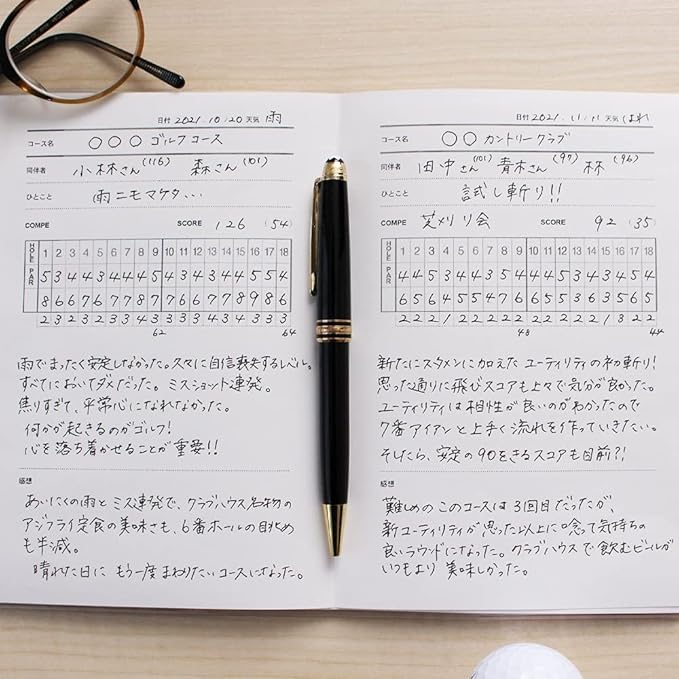 日付 2021.10/20 天気 雨
コース名 ○○○ゴルフコース
同伴者 小林さん(116) 森さん(101)
ひとこと 雨ニモマケタ...
COMPE SCORE 126 (54)
HOLE 1 2 3 4 5 6 7 8 9 10 11 12 13 14 15 16 17 18
PAR
62 64
雨でまったく安定しなかった。久々に自信喪失するレベル。
すべてにおいてダメだった。ミスショット連発。
焦りすぎて、平常心になれなかった。
何かが起きるのがゴルフ!
心を落ち着かせることが重要!!
感想
あいにくの雨とミス連発で、クラブハウス名物の
アジフライ定食の美味さも、6番ホールの眺めも
も半減。
晴れた日に もう一度まわりたいコースになった。
日付 2021.11/11 天気 はれ
コース名 ○○カントリークラブ
同伴者 田中さん(101) 青木さん(97) 林(96)
ひとこと 試し斬り!!
COMPE 芝メリ会 SCORE 92 (35)
HOLE 1 2 3 4 5 6 7 8 9 10 11 12 13 14 15 16 17 18
PAR
48 44
新たにスタメンに加えた ユーティリティの初斬り!
思った通りに飛びスコアも上々で気分が良かった。
ユーティリティは相性が良いのがわかったので
7番アイアンと上手く流れを作っていきたい。
そしたら、安定の90をきるスコアも目前?!
感想
難しめのこのコースは3回目だったが、
新ユーティリティが思った以上に唸って気持ちの
良いラウンドになった。クラブハウスで飲むビールが
いつもより 美味しかった。